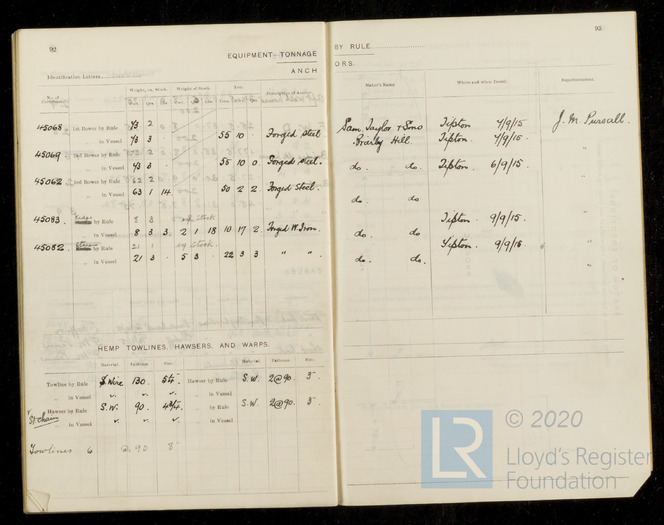 92
EQUIPMENT—TONNAGE
Identification Letters
ANCH
No. of Certificate.
Weight, ex. Stock.
Weight of Stock.
Test.
Description of Anchor.
45068 1st Bower by Rule 73 2
„ in Vessel 73 3 55 10 Forged Steel
45069 2nd Bower by Rule
„ in Vessel 73 3 55 10 0 Forged Steel.
45062 3rd Bower by Rule 62 2
„ in Vessel 63 1 14 50 2 2 Forged Steel.
45083. Kedge by Rule 8 3 Stock
„ in Vessel 8 3 3 2 1 18 10 17 2 Forged W. Iron.
45082 Stream by Rule 21 1 Stock
„ in Vessel 21 3 5 3 22 3 3 „ „
HEMP TOWLINES, HAWSERS, AND WARPS.
Material. Fathoms. Size. Material. Fathoms. Size.
Towline by Rule S. Wire 130. 5¼ Hawser by Rule S.W. 2@90. 3
„ in Vessel „ in Vessel
Hawser by Rule S.W. 90. 4¾ „ by Rule S.W. 2@90. 3
St Chain „ in Vessel „ in Vessel
Towlines 6 @ 90 8
93
BY RULE
ORS.
Maker's Name.
Where and when Tested.
Superintendent.
Sam. Taylor & Sons Tipton 7/9/15 J. M. Pursall.
Brierly Hill. Tipton. 7/9/15. „
do. do Tipton. 6/9/15. „
do. do „
Tipton. 9/9/15.
do. do. „
Tipton. 9/9/15.
do. do. „
© 2020
LR
Lloyd's Register
Foundation